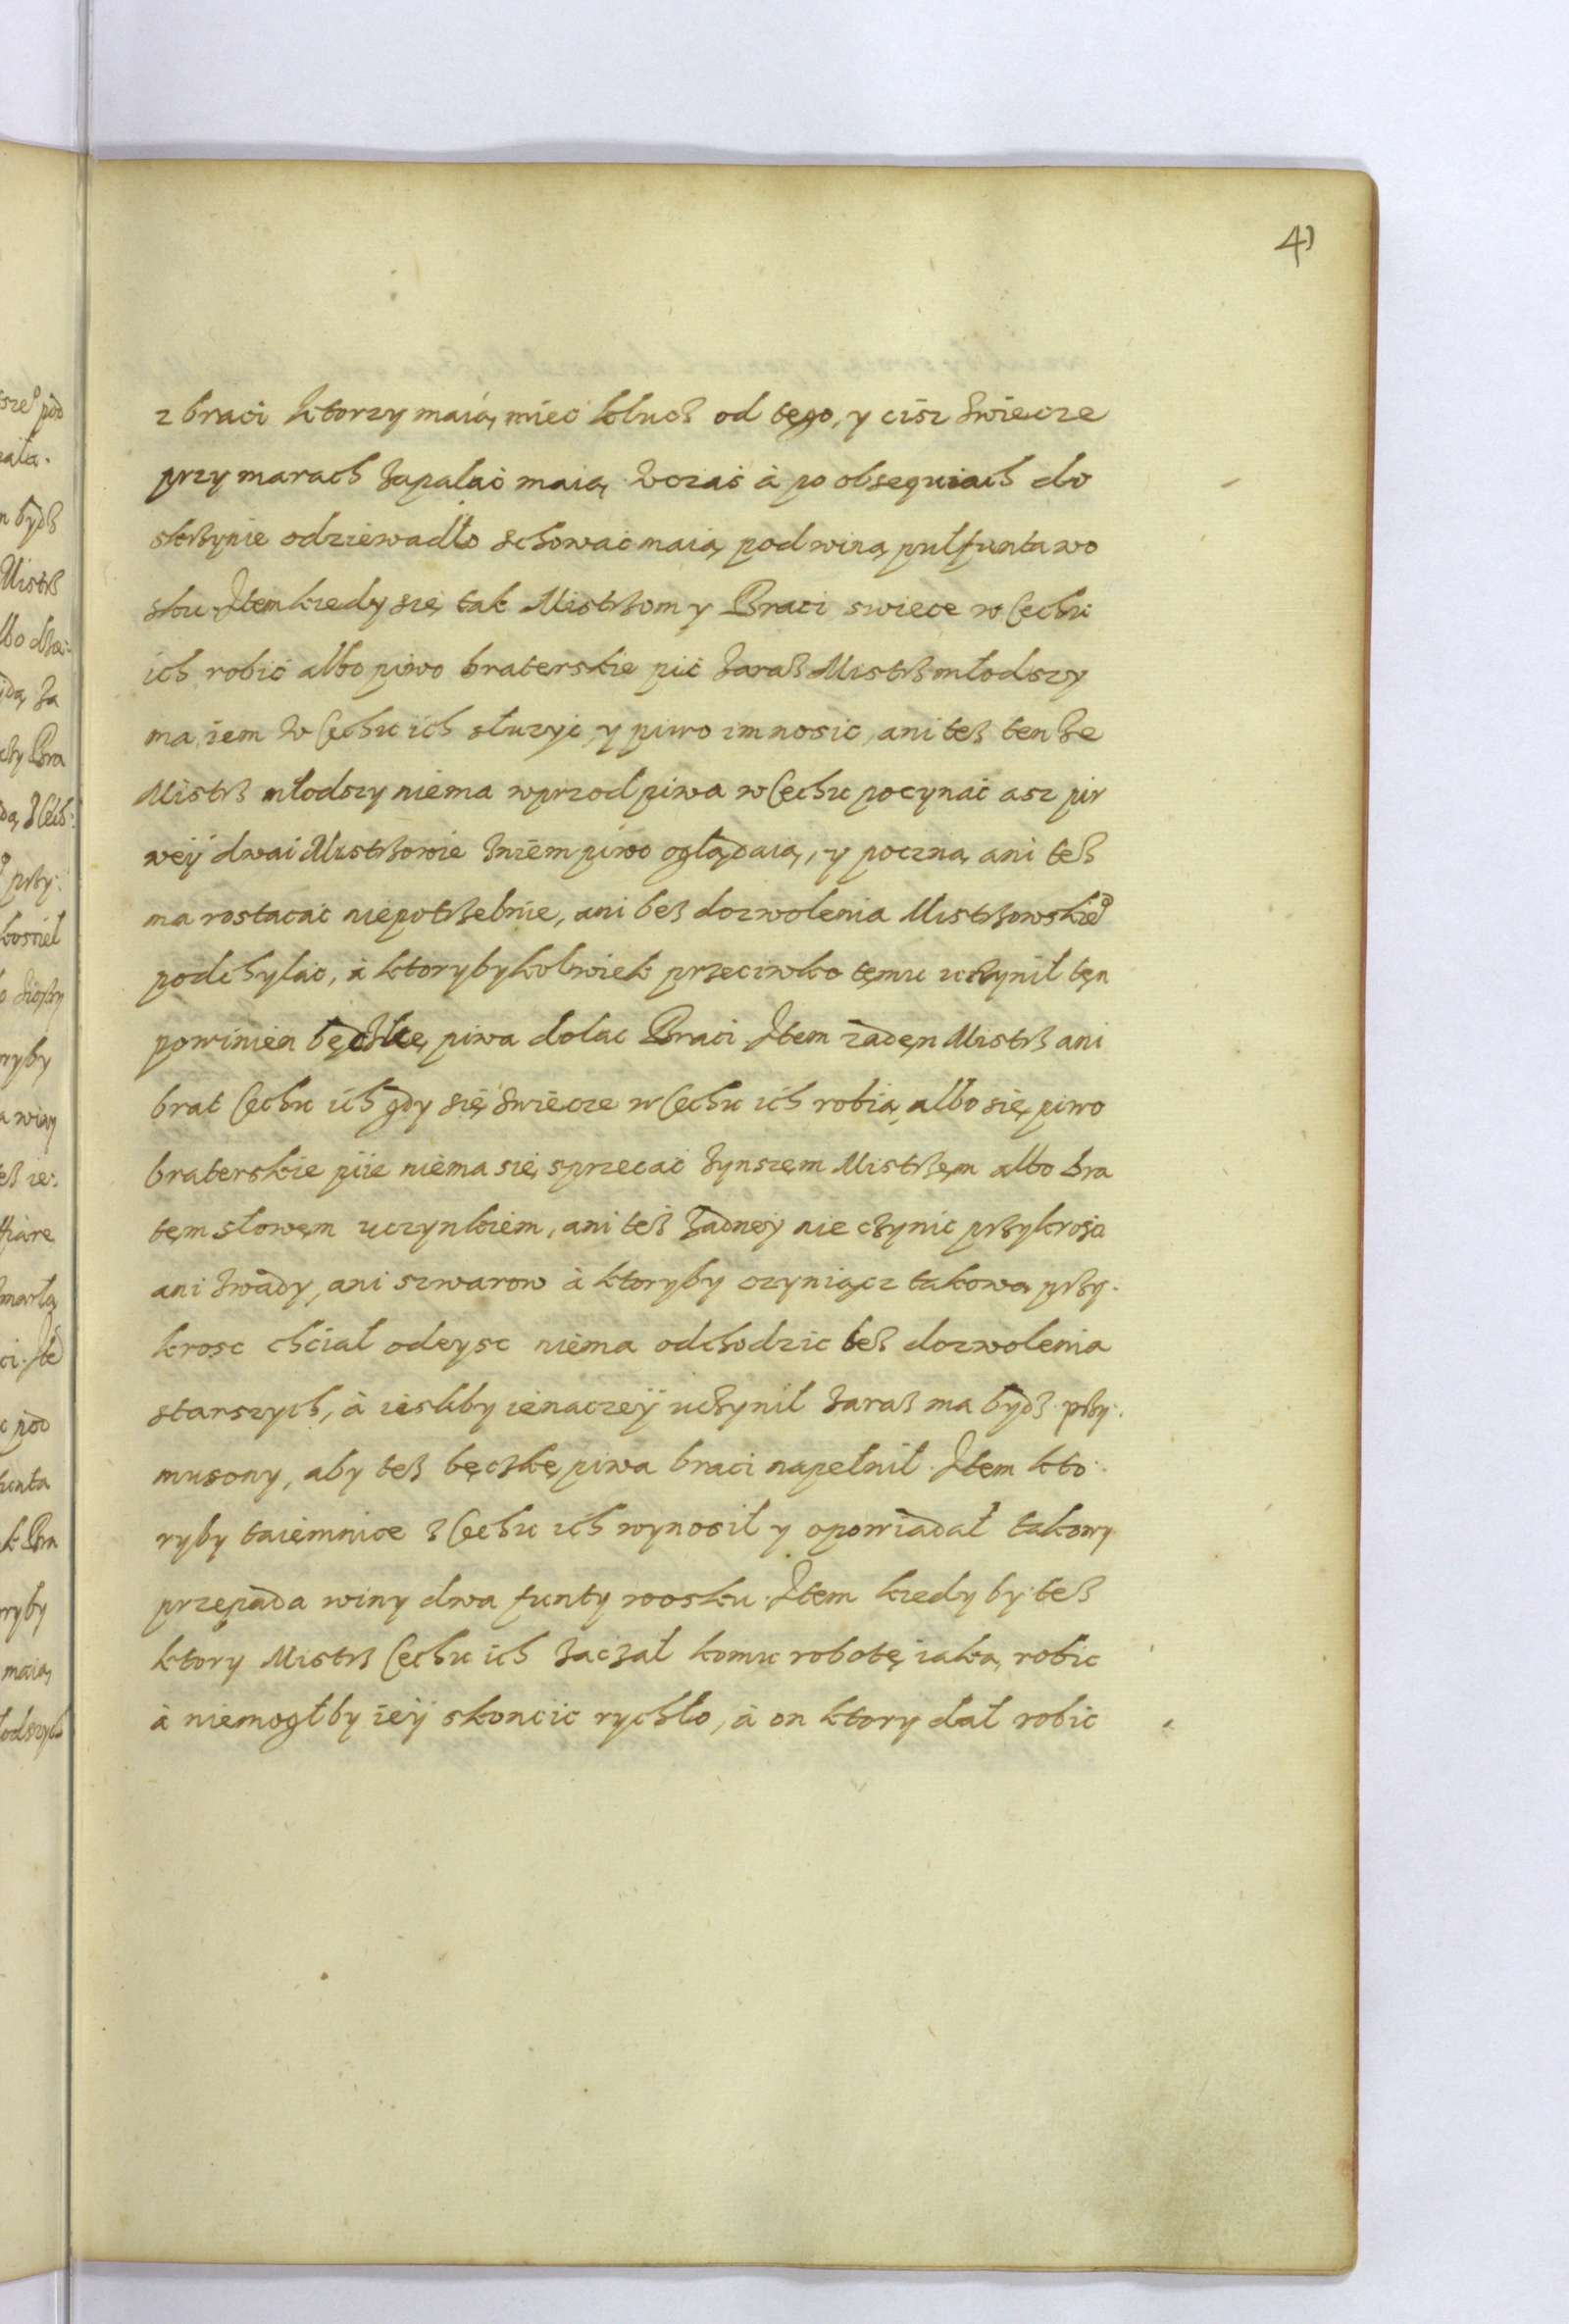 41
z braci ktorzy maią mieć klucz od tęgo, y cisz swiecze
przy marach zapalać maią wczás á po obsequiach do
skrzynie odziewadło schować maią pod winą pułfunta wo
sku. Item kiedy się tak Mistrzom y Braci swiece w Cechu
ich robić albo piwo braterskie pić zaraz Mistrz młodszy
ma iem w Cechu ich słuzyć y piwo im nosic, ani tesz ten ze
Mistrz młodszy niema wprzod piwa w Cechu pocynać asz pir
wèÿ dwai Mistrzowie zniem piwo oglądaią, y poczną ani tesz
ma rostacać niepotrzebnie, ani bez dozwolenia Mistrzowskieº
podchylać, á ktorybykolwiek przeciwko tęmu uczynił tęn
powinien bęczkę piwa dolac Braci Item zadęn Mistrz ani
brat Cechu ich gdy się swiecze w Cechu ich robią albo się piwo
braterskie piie niema się sprzecać zynszęm Mistrzęm albo bra
tęm słowęm uczynkiem, ani tesz zadnęÿ nie czynic przykrosci
ani zwady, ani szwarow á ktoryby czyniącz takową przy.
krosc chciał odeysc niema odchodzic bez dozwolenia
starszych, á iesliby ienaczeÿ uczynił zaraz ma bydz przy:
musony, aby tesz bęczkę piwa braci napełnił. Item kto:
ryby taiemnice z Cechu ich wynosił y opowiadał takowy
przepada winy dwa funty wosku. Item kiedy by tesz
ktory Mistrz Cechu ich zaczał komu robotę iaką robic
á niemogłby ieÿ skoncic rychło, á on ktory dał robic